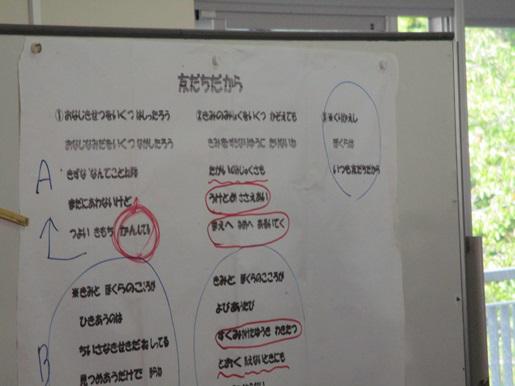 友だちだから
①おなじきせつをいくつ はしったろう
おなじなみだをいくつ ながしたろう
きずな なんてことば
まだにあわないけど
つよい きもち かんじてる
※きみと ぼくらのこころが
ひきあうのは
ちいさなきせきだお してる
見つめあうだけで
②きみのみりょくをいくつ かぞえても
きみをすきなりゆうに たりないね
たがいのみじゅくさも
うけとめ ささえあい
まえへ まえへ あるいてく
きみと ぼくらのこころが
よびあいたび
ゆうき わきたつ
とおく みえないときにも
③※くりかえし
ぼくらは
いつも友だちだから
A
B